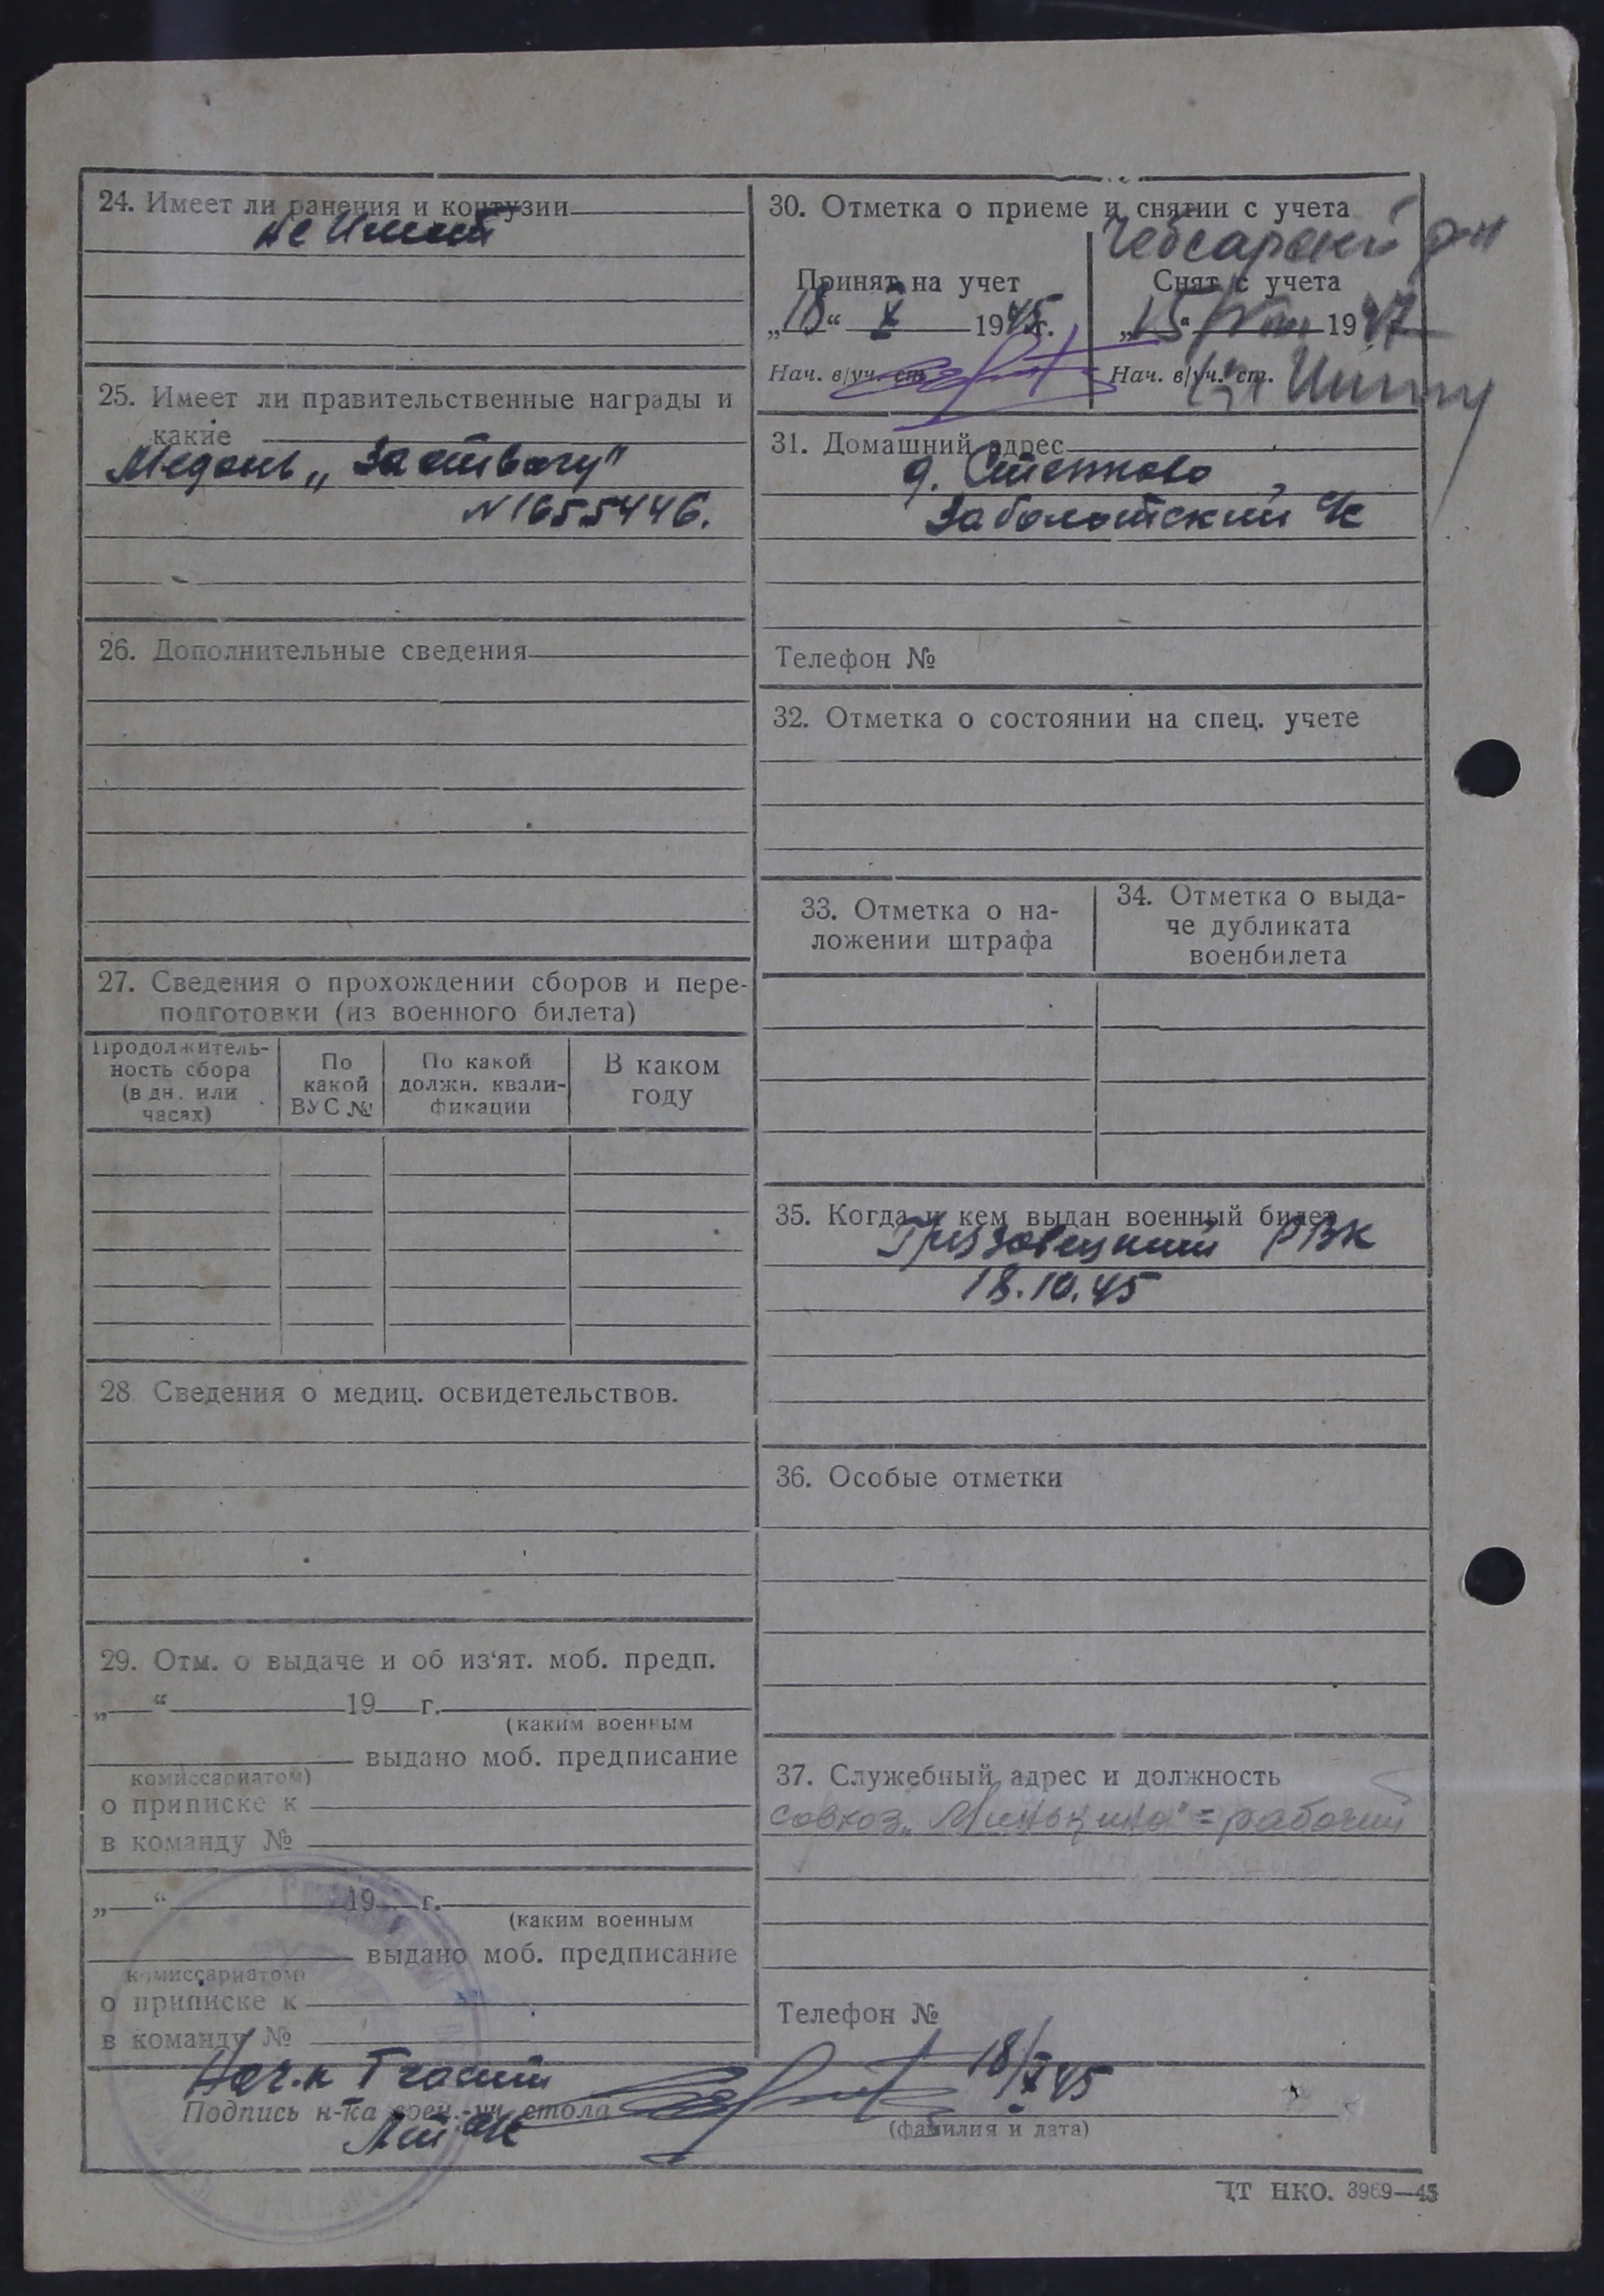 24. Имеет ли ранения и контузии
не имеет
25. Имеет ли правительственные награды и
какие
Медаль „За отвагу"
N 1655446.
26. Дополнительные сведения
27. Сведения о прохождении сборов и пере-
подготовки (из военного билета)
Продолжитель-
ность сбора
(в дн. или
часах)
По
какой
ВУС №
По какой
должн. квали-
фикации
В каком
году
28. Сведения о медиц. освидетельствов.
29. Отм. о выдаче и об из‘ят. моб. предп.
„ “ 19 г.
(каким военным
выдано моб. предписание
комиссариатом)
о приписке к
в команду №
„ “ 19 г.
(каким военным
выдано моб. предписание
комиссариатом)
о приписке к
в команду №
30. Отметка о приеме и снятии с учета
Чебсарский р-н
Принят на учет
„18“ X 1945г.
Нач. в/уч. ст.
Снят с учета
„15“ VIII 1947
Нач. в/уч. ст.
31. Домашний адрес
д. Стенково,
Заболотский с/с
Телефон №
32. Отметка о состоянии на спец. учете
33. Отметка о на-
ложении штрафа
34. Отметка о выда-
че дубликата
военбилета
35. Когда и кем выдан военный билет
Грязовецкий РВК
18.10.45
36. Особые отметки
37. Служебный адрес и должность
совхоз „Минькино" = рабочий
Телефон №
Нач.к I части
18/X 45
Подпись н-ка воен.-уч. стола
(фамилия и дата)
ЦТ НКО. 3969—45